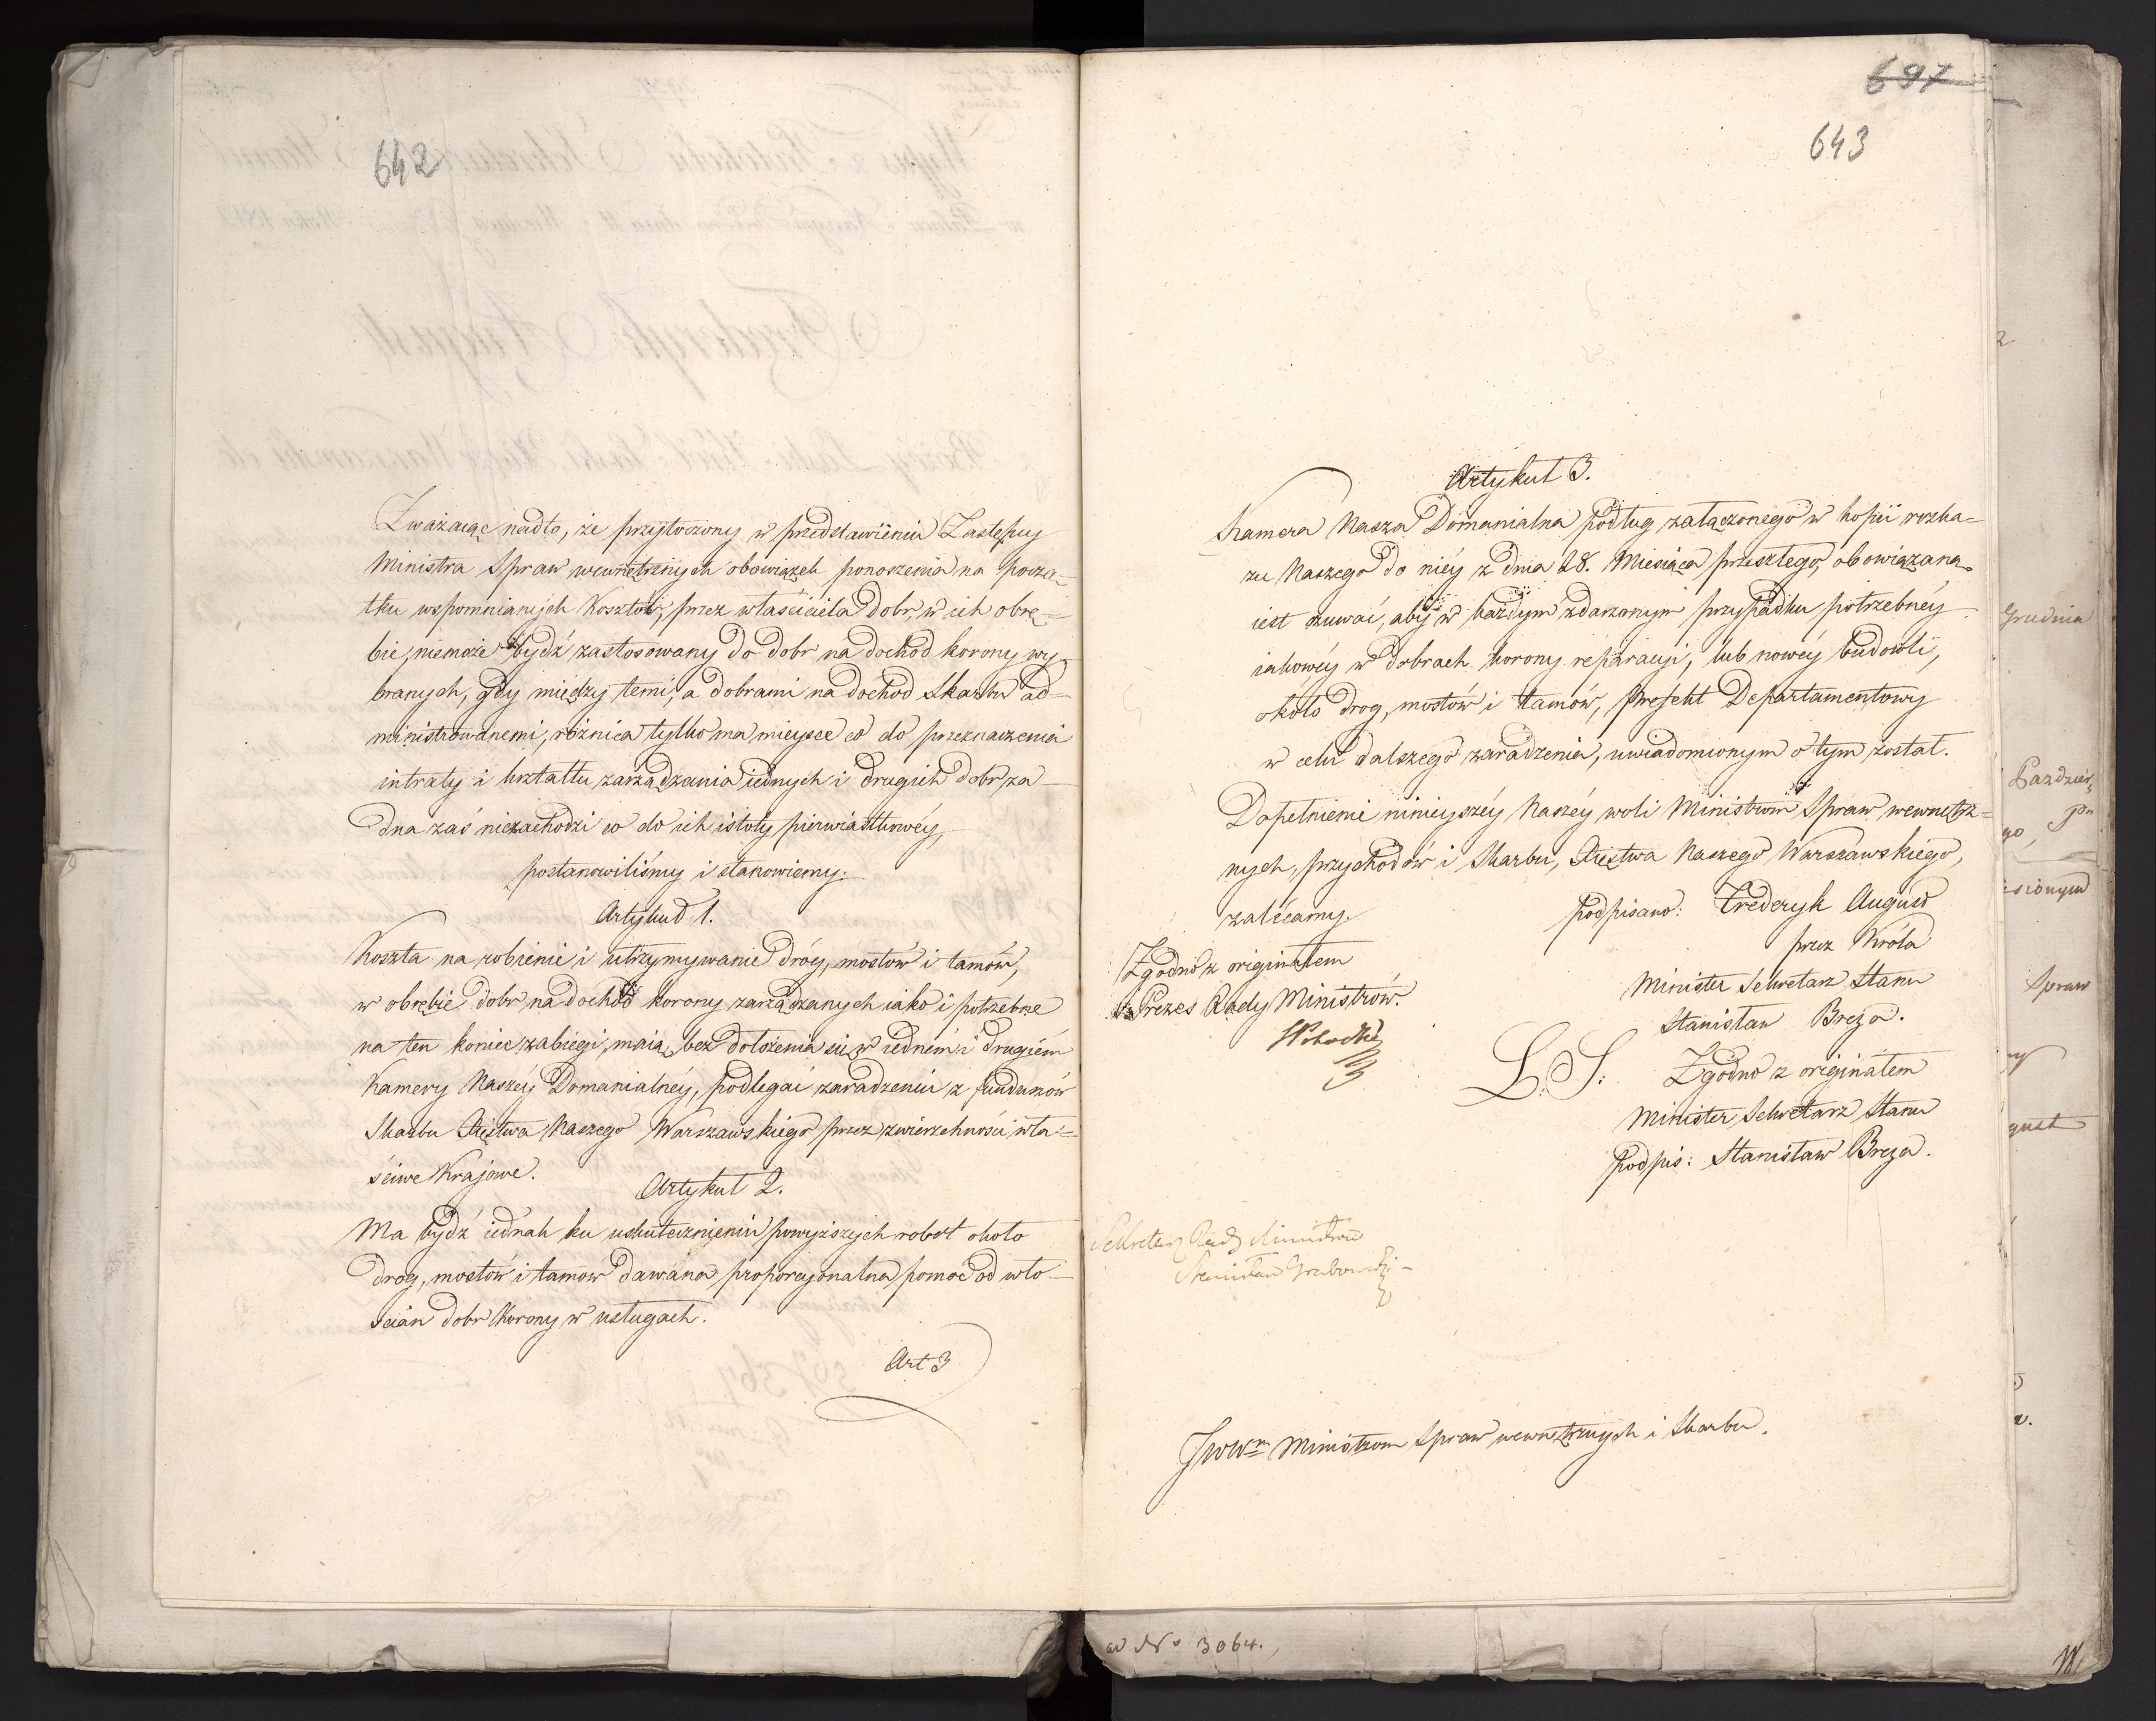 642
Zważaiąc nadto, że przytoczony w przedstawieniu Zastępcy
Ministra Spraw wewnętrznych obowiązek ponoszenia na począ-
tku wspomnianych Kosztów, przez właściciela dobr, w ich obrę-
bie, niemoże bydź zastosowany do dobr na dochod korony wy-
branych, gdy między temi, a dobrami na dochod Skarbu ad-
ministrowanemi, różnica tylko ma mieysce co do przeznaczenia
intraty i kształtu zarządzania iednych i drugich dobr, ża-
dna zaś niezachodzi co do ich istoty pierwiastkowéy,
postanowiliśmy i stanowiemy:
Artykuł 1.
Koszta na robienie i utrzymywanie dróg, mostów i tamów,
w obrębie dobr na dochód korony zarządzanych iako i potrzebne
na ten koniec zabiegi, maią, bez dołożenia się w iednem i drugiém
Kamery Naszéy Domanialnéy, podlegać zaradzeniu z funduszów
Skarbu Xięstwa Naszego Warszawskiego przez zwierzchności wła-
ściwe Krajowe.
Artykuł 2.
Ma bydź iednak ku uskutecznieniu powyższych robot około
drog, mostów i tamow dawana proporcyonalna pomoc od wło-
ścian dobr Korony w usługach.
Art 3
697
643
Artykuł 3.
Kamera Nasza Domanialna podług załączonego w kopii rozka-
zu Naszego do niéy z dnia 28. Miesiąca przeszłego, obowiązana
iest czuwać, aby w każdym zdarzonym przypadku potrzebnéy
iakowéy w dobrach korony reparacyi, lub nowéy budowli,
około drog, mostów i tamów, Prefekt Departamentowy
w celu dalszego zaradzenia, uwiadomionym o tym został.
Dopełnienie ninieyszéy Naszéy woli Ministrom Spraw wewnętrz-
nych, przychodów i Skarbu, Xięstwa Naszego Warszawskiego,
zalecamy.
podpisano: Fréderyk August
przez Króla
Minister Sekretarz Stanu
Stanisław Breza.
Zgodno z originałem
Prezes Rady Ministrów.
L. S:
Zgodno z originałem
Minister Sekretarz Stanu
podpis: Stanisław Breza.
Sekretarz Rady Ministrów
Stanisław Grabowski
JWWm Ministrom Spraw wewnętrznych i Skarbu.
ad No 3064.
Grudnia
Pazdzier,
go,
Spraw